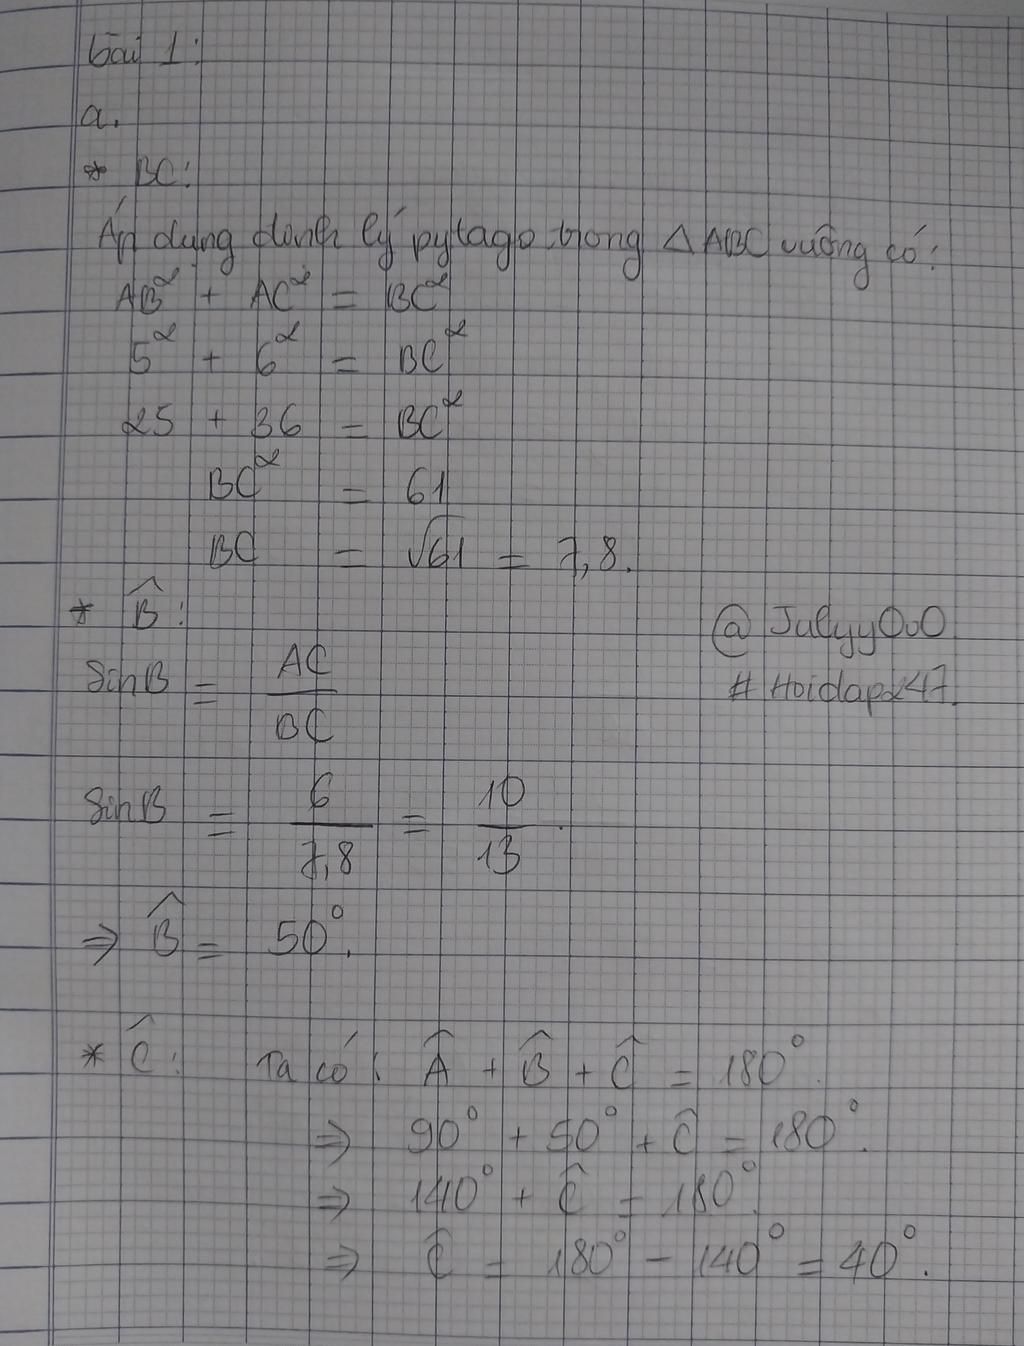 bài 1:
a.
* BC:
Áp dụng định lý pytago trong △ABC vuông có:
AB² + AC² = BC²
5² + 6² = BC²
25 + 36 = BC²
BC² = 61
BC = √61 = 7,8.
* B̂:
@JulyyOvO
#Hoidap247
SinB = AC/BC
SinB = 6/7,8 = 10/13.
⇒ B̂ = 50°.
* Ĉ: Ta có: Â + B̂ + Ĉ = 180°.
⇒ 90° + 50° + Ĉ = 180°.
⇒ 140° + Ĉ = 180°.
⇒ Ĉ = 180° - 140° = 40°.